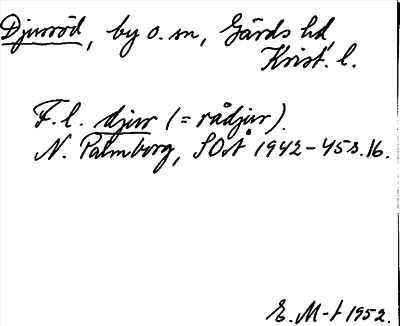 Djurröd, by o. sn, Gärds hd,
Krist. l.
F. l. djur (= rådjur).
N. Palmborg, SOÅ 1942–45 s. 16.
E. M-t 1952.